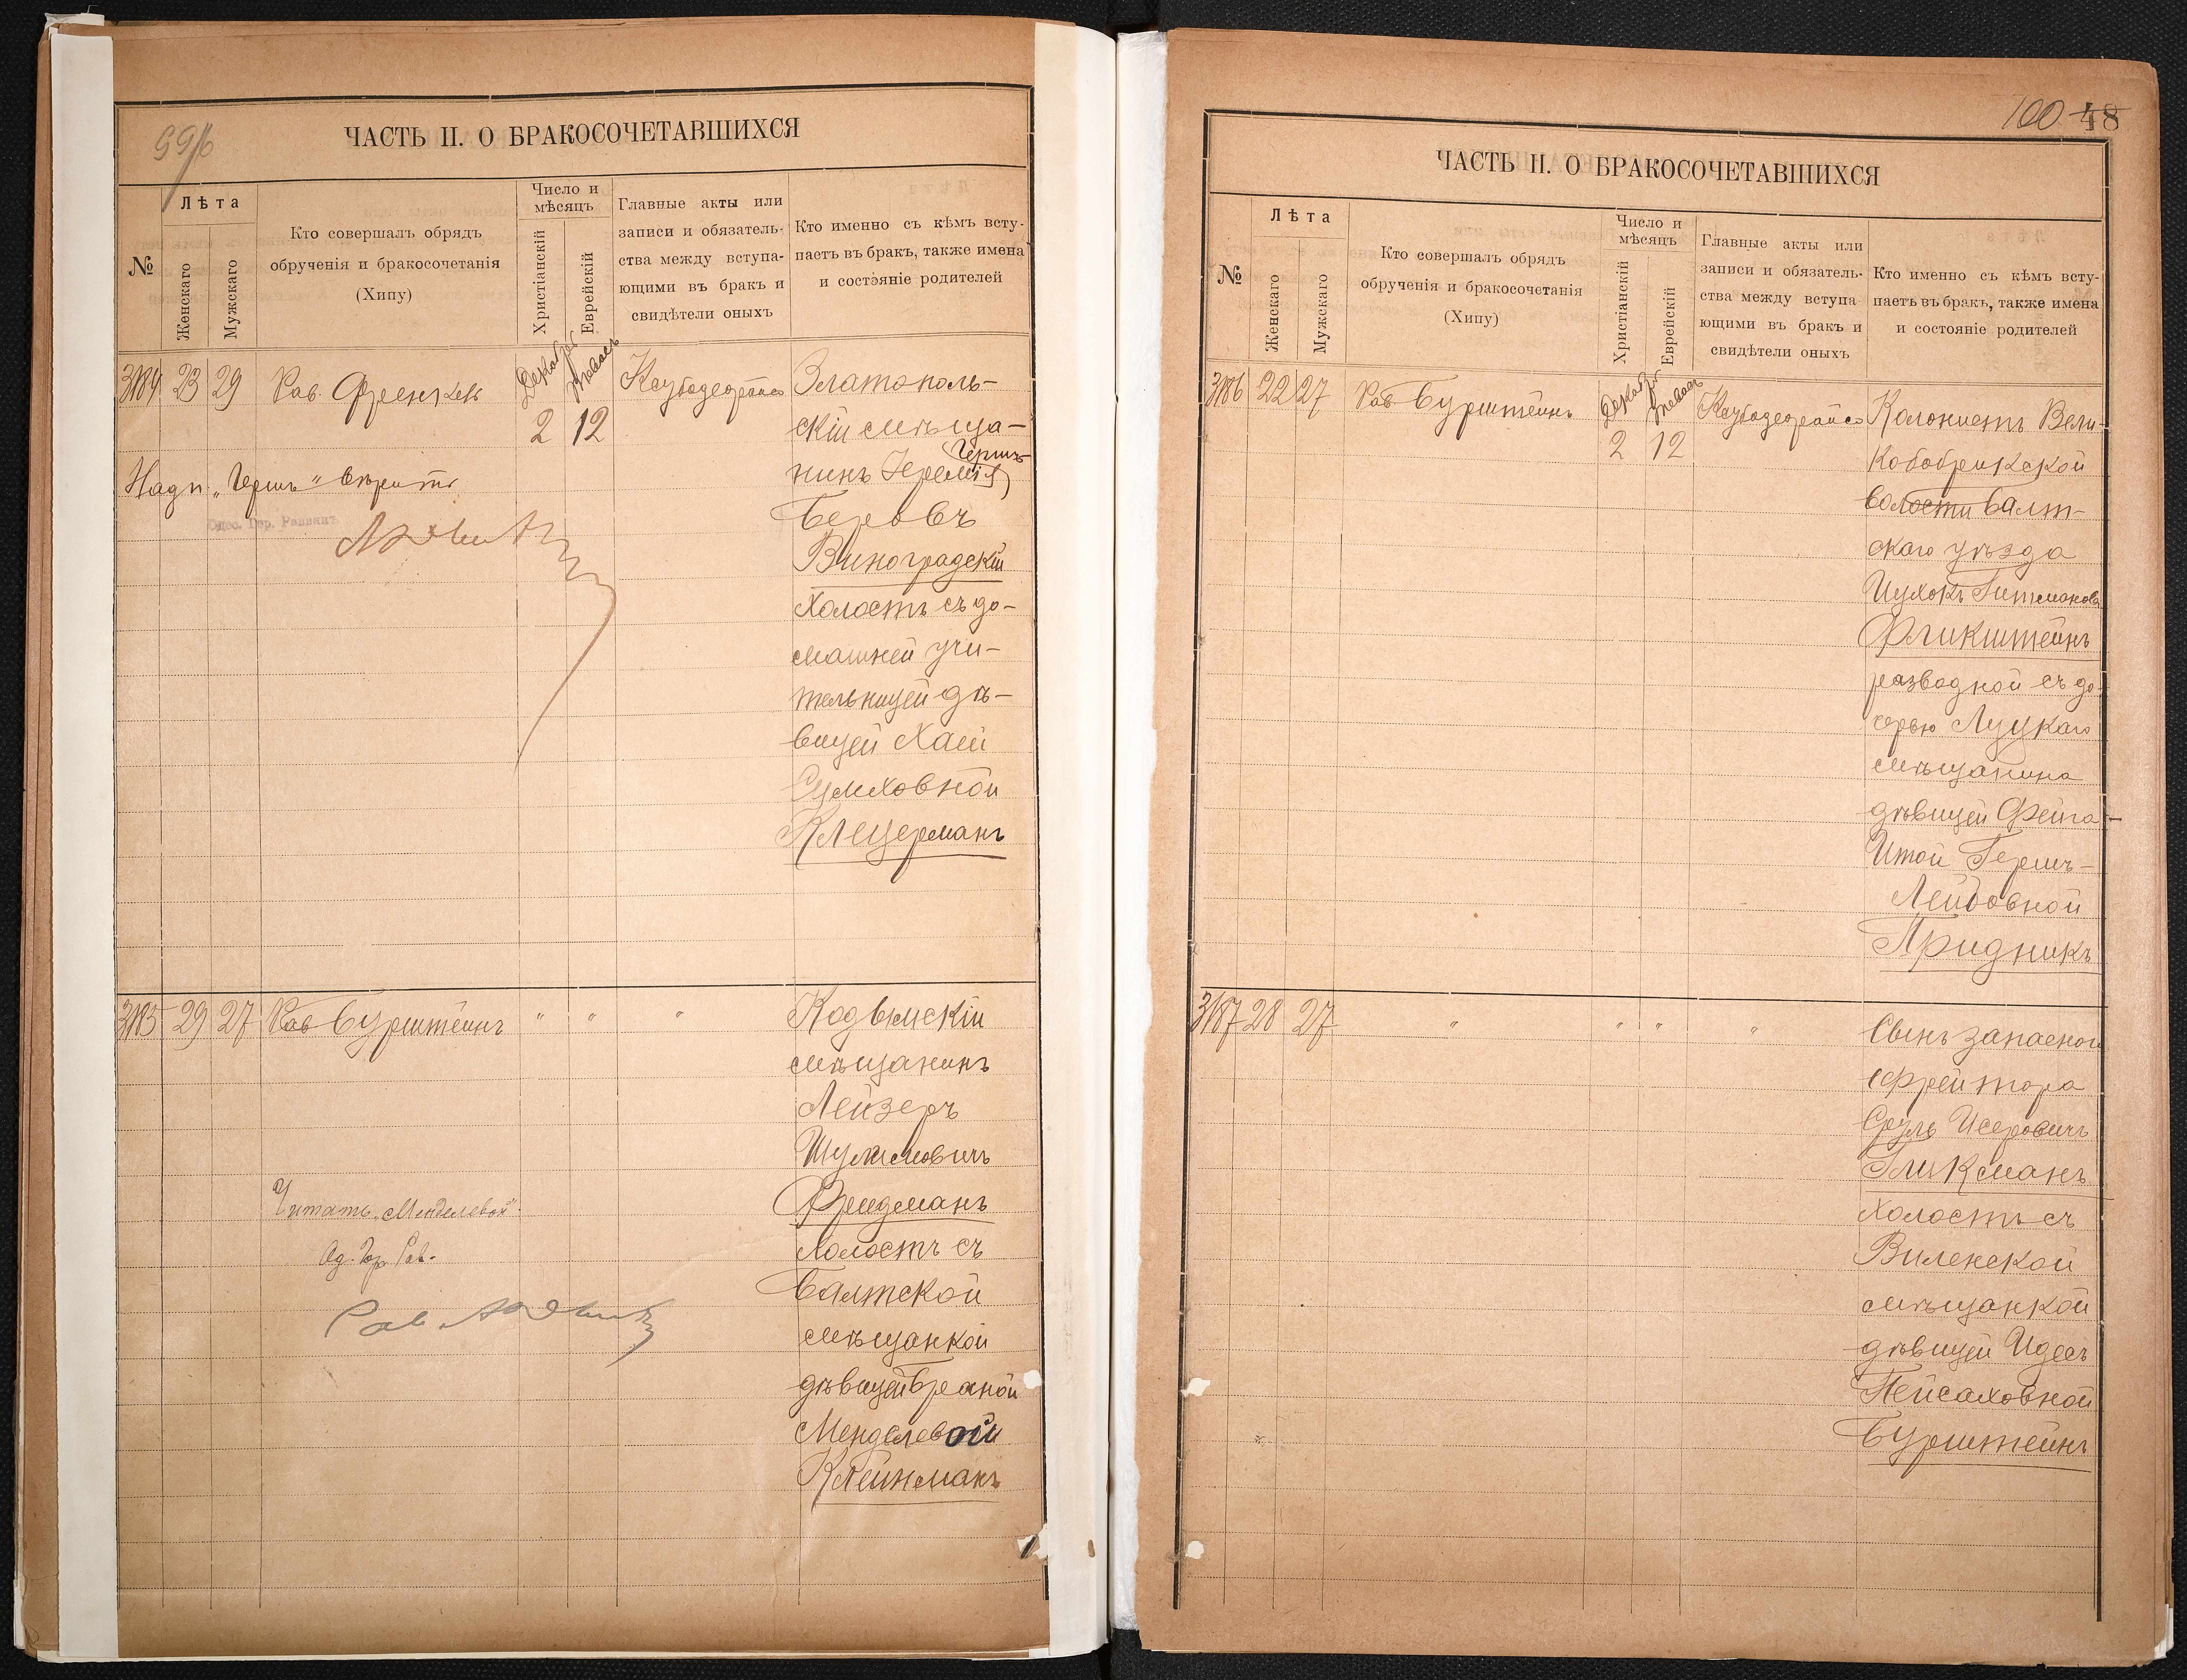 99/б
ЧАСТЬ II. О БРАКОСОЧЕТАВШИХСЯ
№
Лѣта
Женскаго
Мужскаго
Кто совершалъ обрядъ
обрученія и бракосочетанія
(Хипу)
Число и
мѣсяцъ
Христіанскій
Еврейскій
Главные акты или
записи и обязатель-
ства между вступа-
ющими въ бракъ и
свидѣтели оныхъ
Кто именно съ кѣмъ всту-
паетъ въ бракъ, также имена
и состояніе родителей
23 29 Рав. Френкель
Декабрь
2 12
Златополь-
скій мѣща-
Гершъ
нинъ Іеремія
Беровъ
Виноградскій
холостъ съ до-
машней учи-
тельницей дѣ-
вицей Хаей
Клецерманъ
Надп. „Гершъ"
Одес. Гор. Раввинъ
29 27 Рав Бурштейнъ " " "
Кодымскій
мѣщанинъ
Лейзеръ
Шулимовичъ
Фридманъ
холостъ съ
Балтской
мѣщанкой
дѣвицей Бреаной
Менделевой
Клейнманъ
Читать „Менделевой"
Од. Гор. Рав.
100 48
ЧАСТЬ II. О БРАКОСОЧЕТАВШИХСЯ
№
Лѣта
Женскаго
Мужскаго
Кто совершалъ обрядъ
обрученія и бракосочетанія
(Хипу)
Число и
мѣсяцъ
Христіанскій
Еврейскій
Главные акты или
записи и обязатель-
ства между вступа-
ющими въ бракъ и
свидѣтели оныхъ
Кто именно съ кѣмъ всту-
паетъ въ бракъ, также имена
и состояніе родителей
3186 22 27 Рав Бурштейнъ
Декабрь
2 12
Колонистъ Вели-
кобобрикской
волости Балт-
скаго уѣзда
Ицхокъ Гитмановъ
Фликштейнъ
разводной съ до-
черью Луцкаго
мѣщанина
дѣвицей Фейга-
Итой Гершъ-
Лейбовной
Придникъ
3187 28 27 " " " "
Сынъ запаснаго
ефрейтора
Сруль Исеровичъ
Гликманъ
холостъ съ
Виленской
мѣщанкой
дѣвицей Идесъ
Пейсаховной
Бурштейнъ